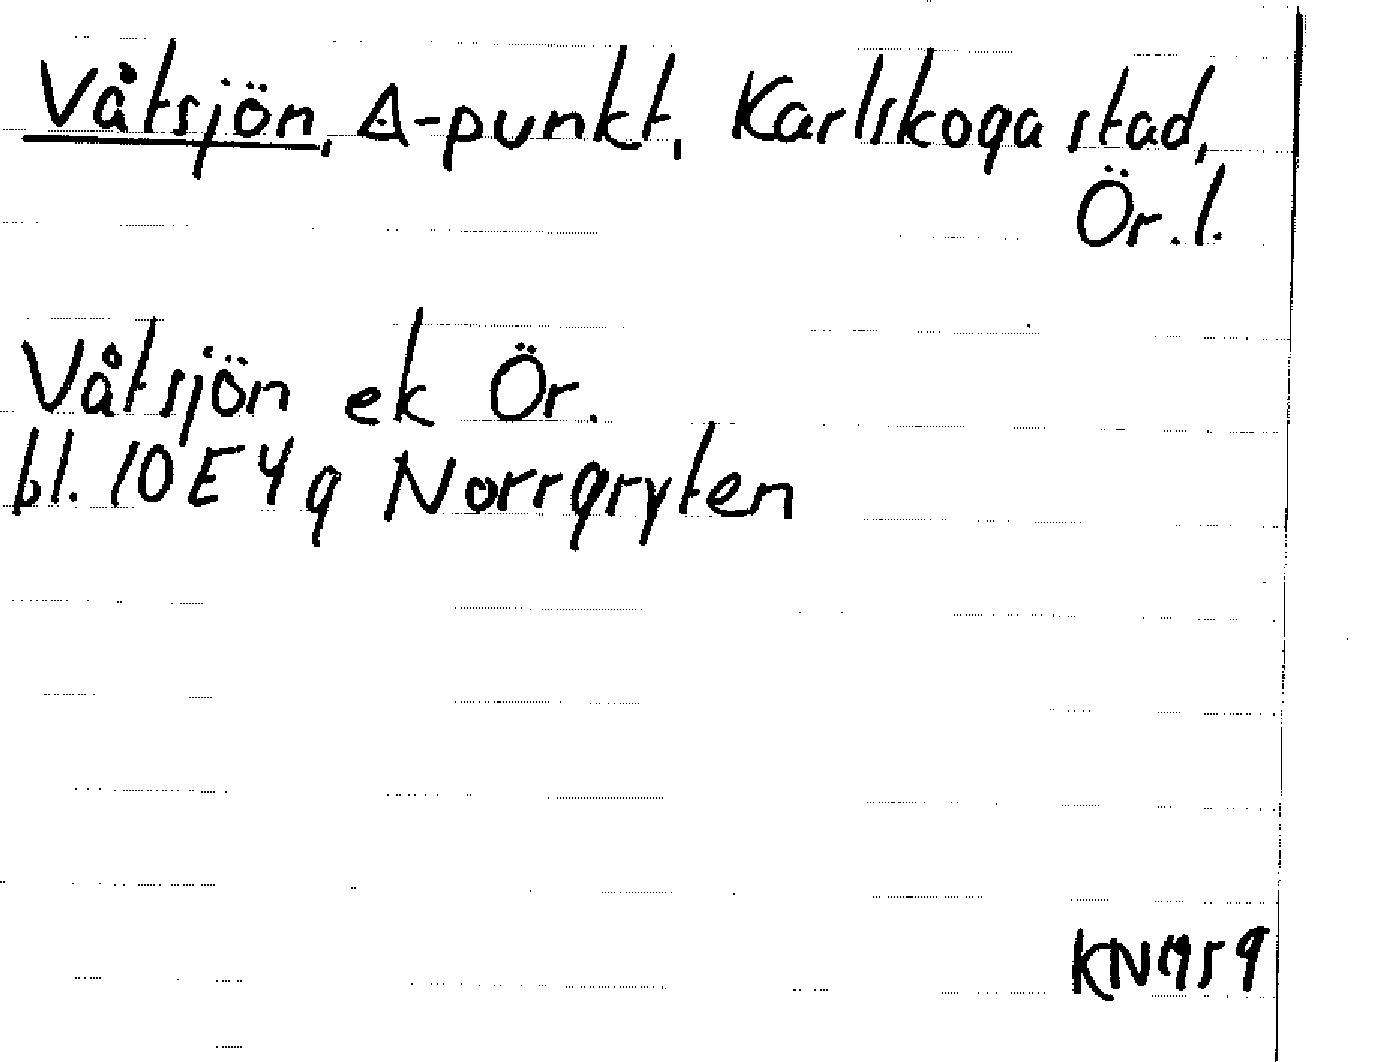 Våtsjön, Δ-punkt, Karlskoga stad,
Ör. l.
Våtsjön ek Ör.
bl. 10E4g Norrgryten